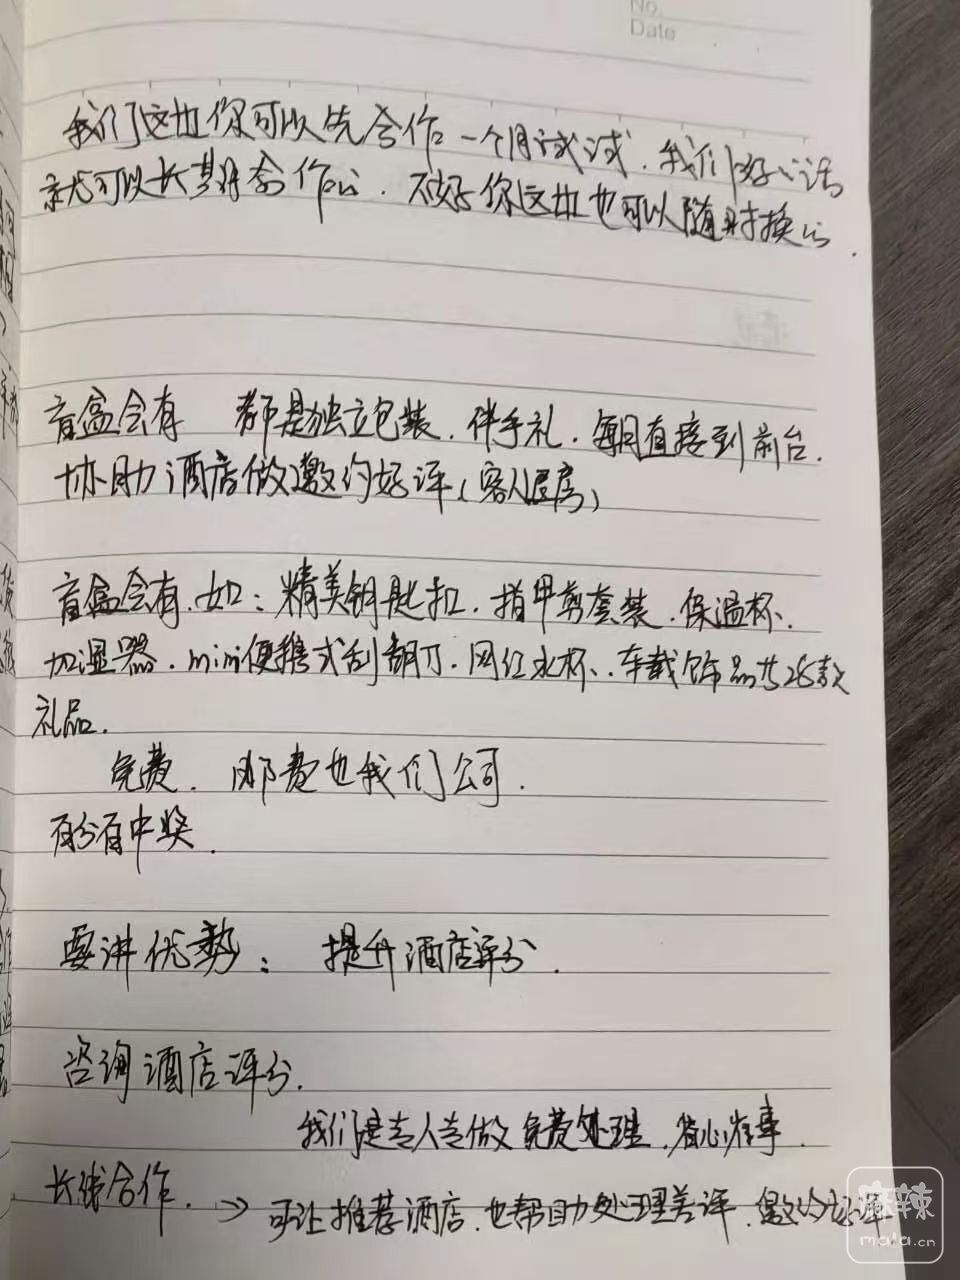 No.
Date
我们这边你可以先合作一个月试试.我们好的话
就可以长期合作的.不好你这边也可以随时换的.
盲盒会有 都是独立包装.伴手礼.每月直接到前台.
协助酒店做邀约好评(客人退房)
盲盒会有.如:精美钥匙扣.指甲剪套装.保温杯.
加湿器.mini便携式刮胡刀.网红水杯.车载饰品共26款
礼品.
免费.邮费也我们公司.
百分百中奖.
要讲优势: 提升酒店评分.
咨询酒店评分.
我们是专人专做免费处理.省心省事.
长线合作.→可让推荐酒店.也帮助处理差评.邀约好评
麻辣
mala.cn